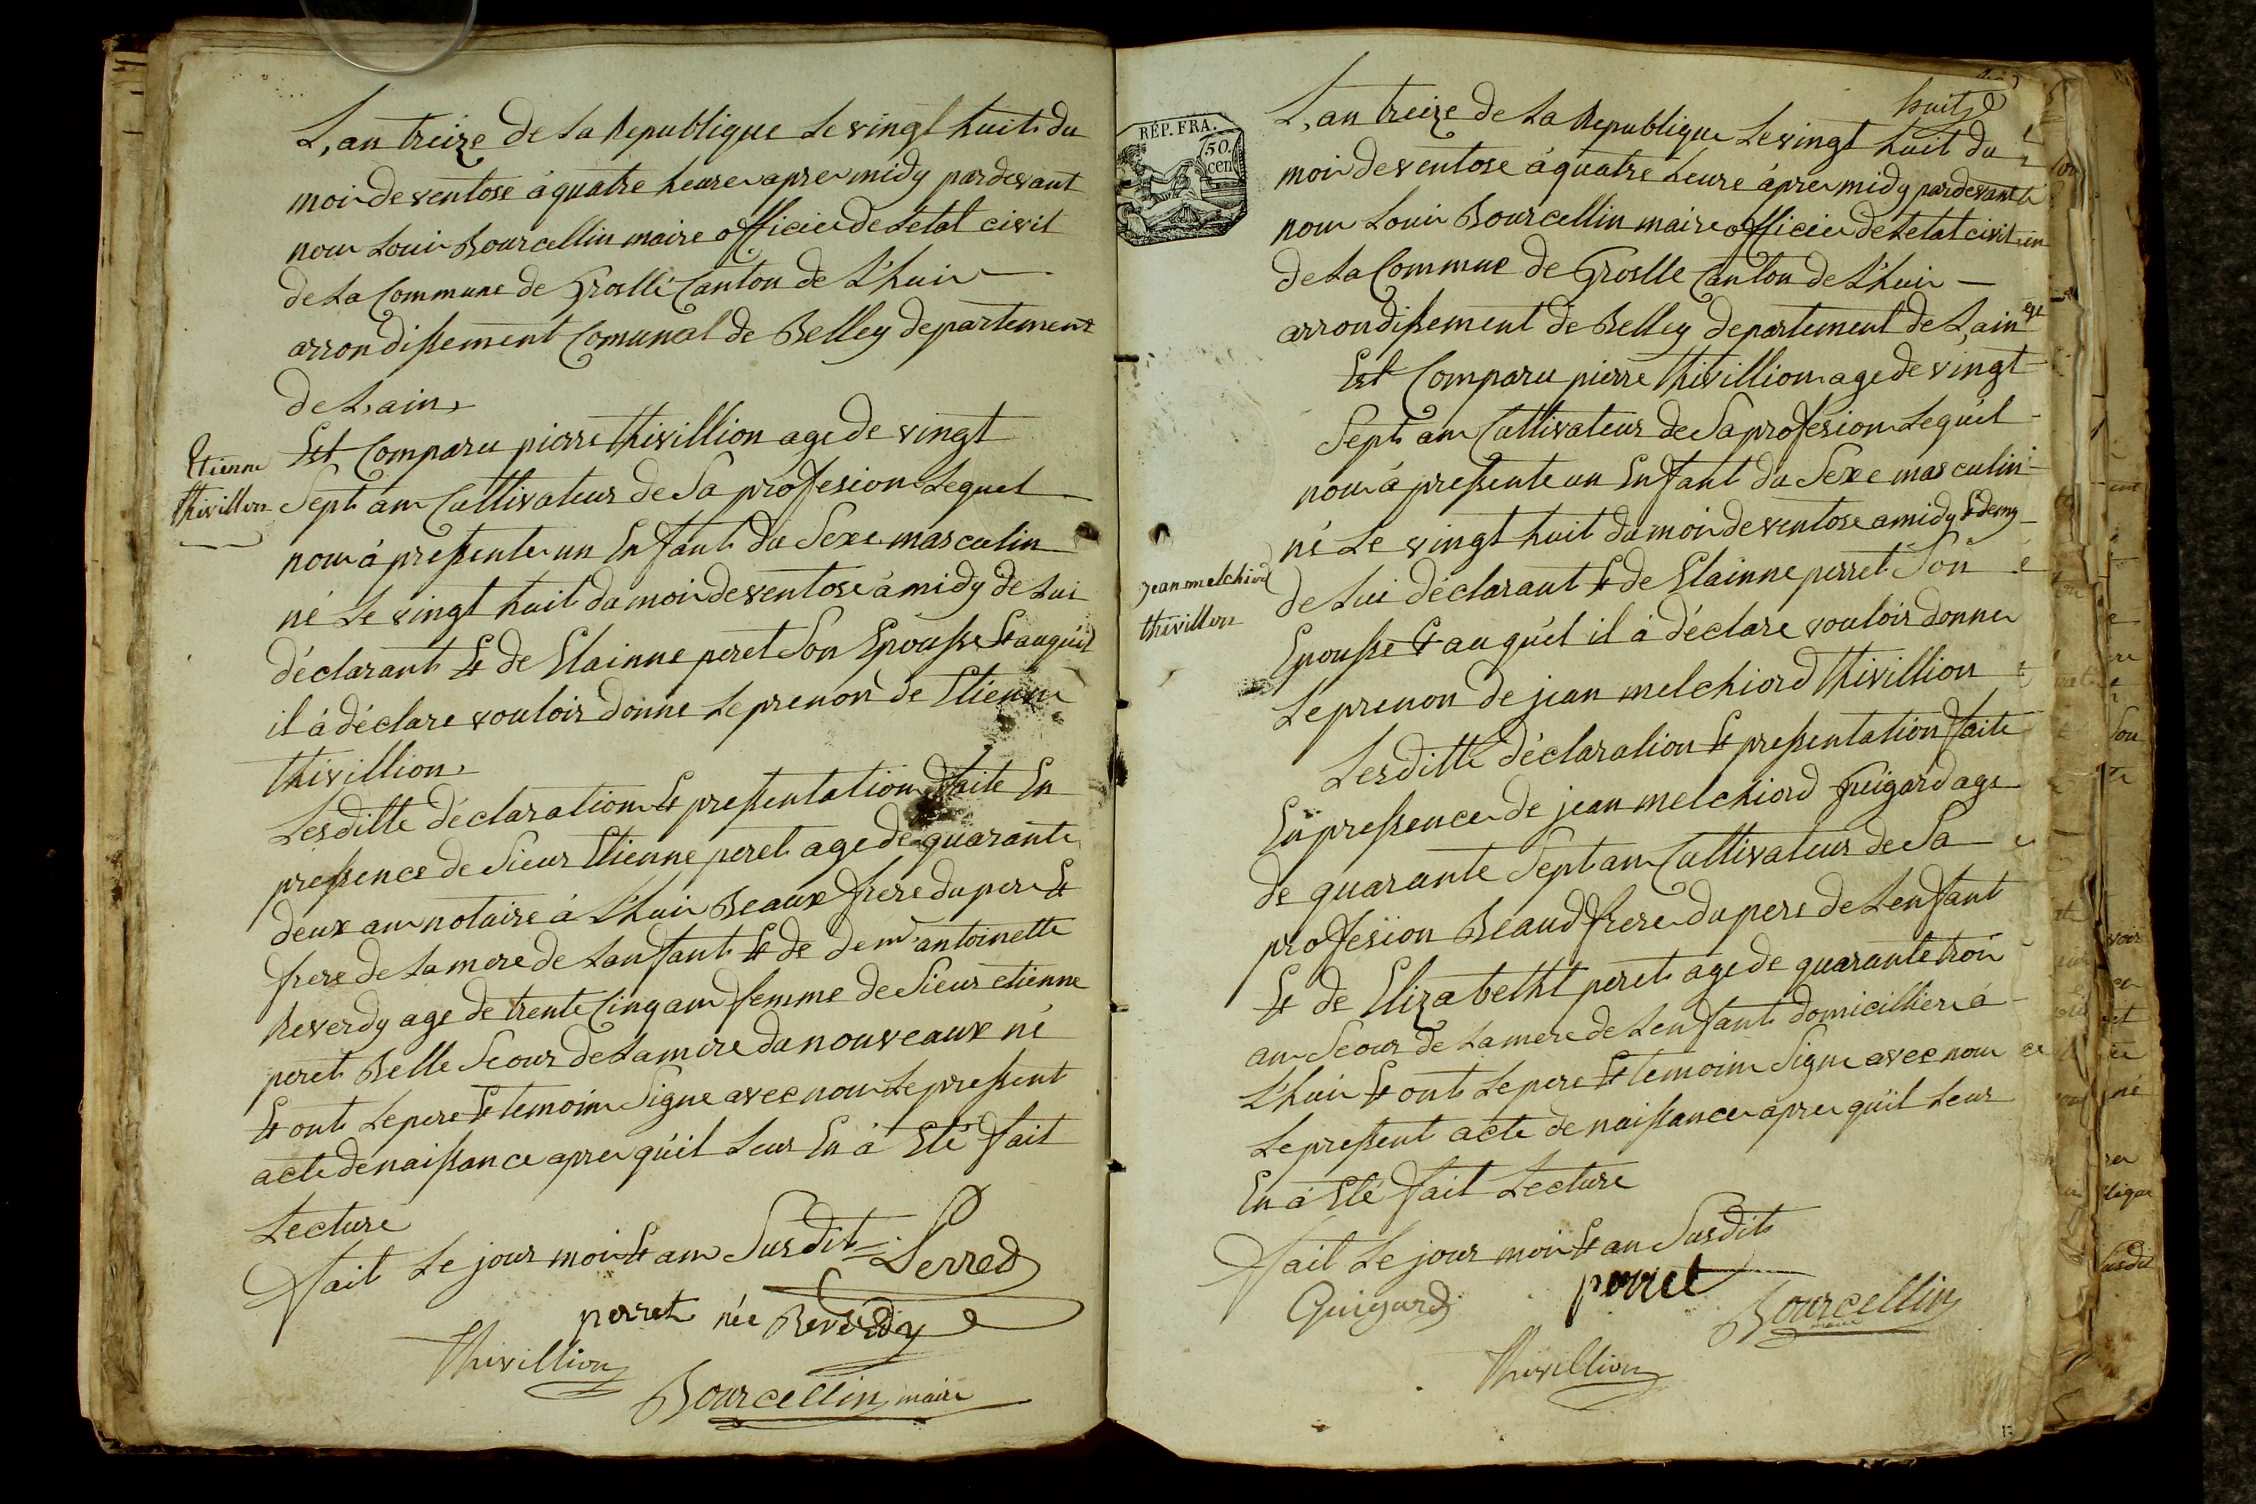 L'an treize de La Republique Le vingt huit du
moi de ventose à quatre heure apre midy pardevant
nou Loui Bourcellin maire officier de Letat civil
de La Commune de Grollé Canton de L'huis
arrondissement Comunal de Belley departement
de L'ain
Est Comparu pierre thivillion age de vingt
Etienne
thivillion
Sept an Cultivateur de Sa profesion Lequel
nou à pressente un Enfant du Sexe masculin
né Le vingt huit du moi de ventose à midy de Lui
déclarant Et de Etainne peret Son Epousse Et auquél
il à déclare vouloir donne Le prenon de Etienne
thivillion
Lesditte déclaration Et pressentation faite En
pressence de Sieur Etienne peret age de quarante
deux an notaire à L'huis Beaux frere du pere Et
frere de La mere de Lanfant Et de dem antoinette
Reverdy age de trente Cinq an femme de Sieur etienne
peret Belle Seour de La mere du nouveaux né
Et ont Le pere Et temoin Signe avec nou Le pressent
acte de naissance apre quíl Leur En à Eté fait
Lecture
fait Le jour moi Et an Susdit Perret
perret née Reverdy
thivillion
Bourcellin maire
huit
RÉP. FRA.
50.
cen
L'an treize de La Republique Le vingt huit du
moi de ventose à quatre heure àpre midy pardevant
nou Loui Bourcellin maire officier de Letat civil
de La Commune de Groslle Canton de L'huis
arrondissement de Belley departement de L'ain
Est Comparu pierre thivillion age de vingt
Sept an Cultivateur de Sa profesion Lequél
nou à pressente un Enfant du Sexe masculin
né Le vingt huit du moi de ventose a midy Et demy
jean melchiord
thivillion
de Lui déclarant Et de Etainne perret Son
Epousse Et auquél il à déclare vouloir donner
Le prenon de jean melchiord thivillion
Lesditte déclaration Et pressentation faite
En pressence de jean melchiord Guigard age
de quarante Sept an Cultivateur de Sa
profesion Beaud frere du pere de Lenfant
Et de Elizabetht peret age de quarante troi
an Seour de La mere de Lenfant domicillier à
L'huis Et ont Le pere Et temoin Signe avec nou
Le pressent acte de naissance apre quíl Leur
En à Eté fait Lecture
fait Le jour moi Et an Susdit
Guigard
perret
Bourcellin
maire
thivillion